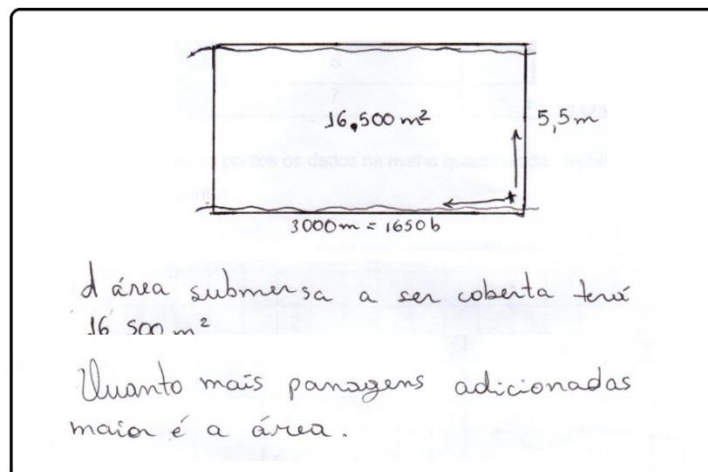 16,500 m²
5,5 m
3000 m = 1650 b
A área submersa a ser coberta terá
16 500 m²
Quanto mais panagens adicionadas
maior é a área.